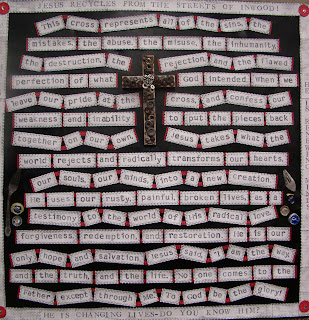 JESUS RECYCLES FROM THE STREETS OF INWOOD!
This cross represents all of the sins, the
mistakes, the abuse, the misuse, the inhumanity,
the destruction, the rejection, and the flawed
perfection of what God intended when we
leave our pride at the cross, and confess our
weakness and inability to put the pieces back
together on our own. Jesus takes what the
world rejects and radically transforms our hearts,
our souls, our minds, into a new creation.
He uses our rusty, painful, broken lives as a
testimony to the world of His radical love,
forgiveness, redemption, and restoration. He is our
only hope and salvation. Jesus said, "I am the way,
and the truth, and the life. No one comes to the
Father except through Me. To God be the glory!
HE IS CHANGING LIVES-DO YOU KNOW HIM?